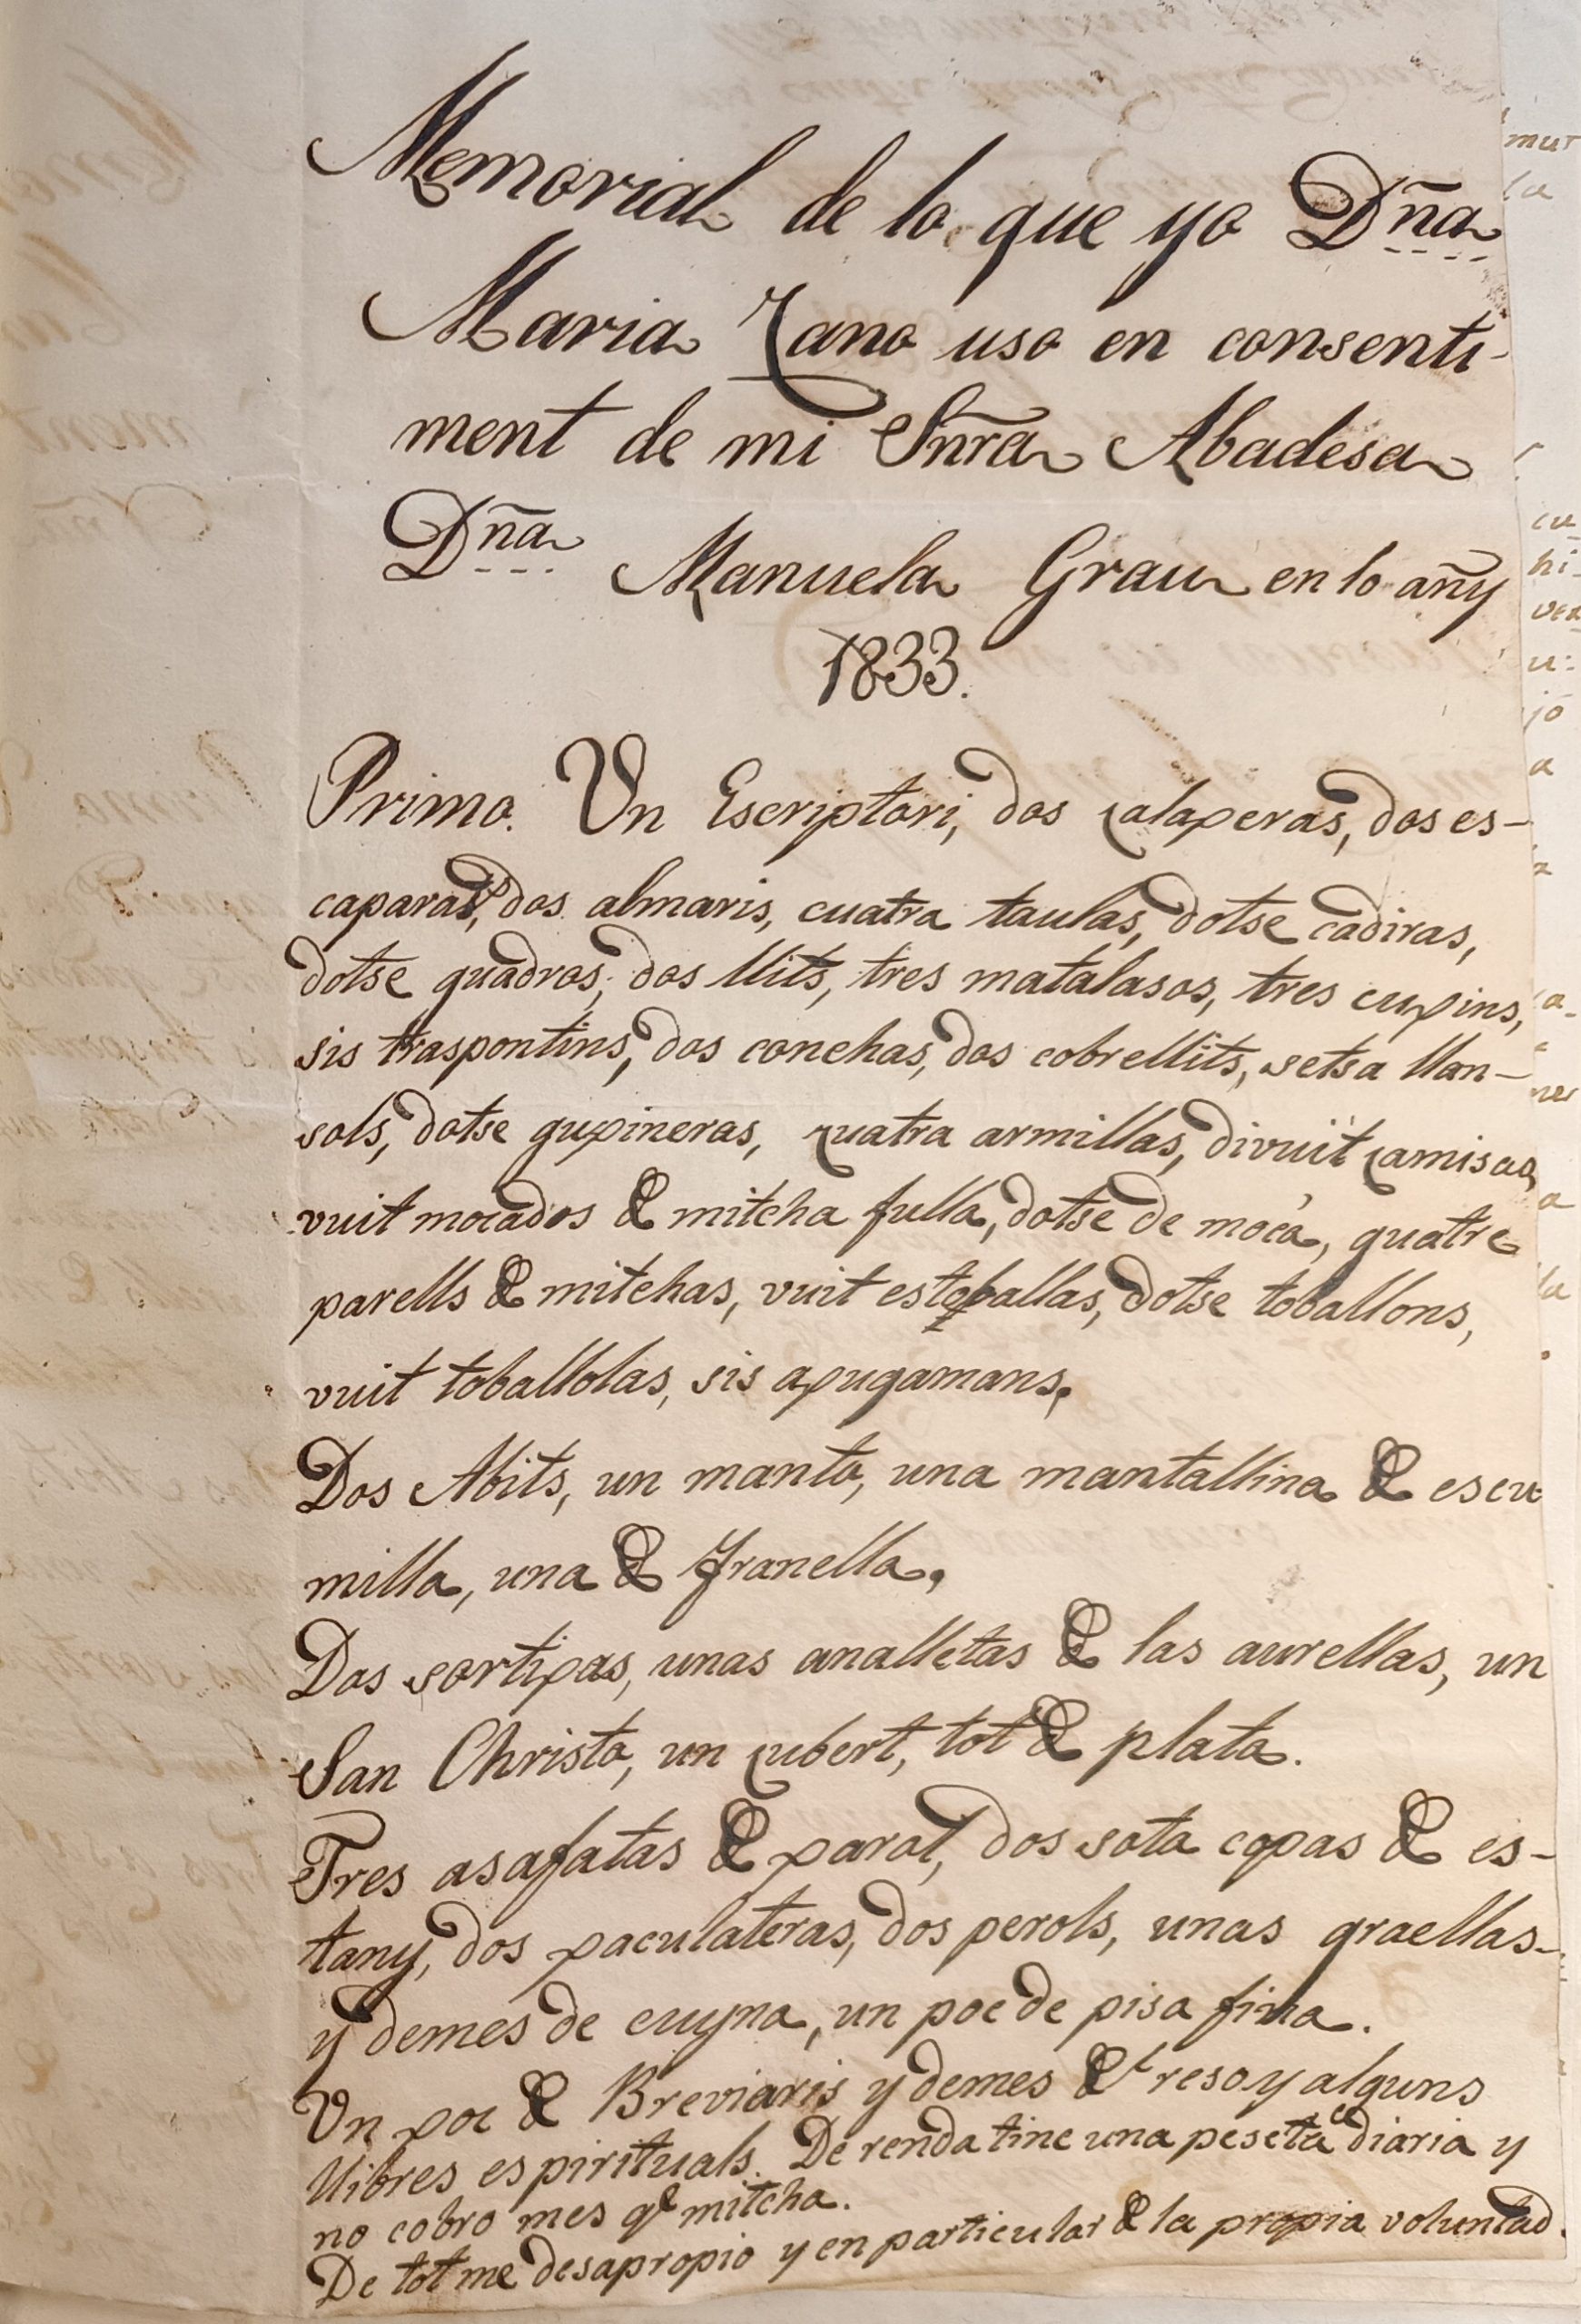 Memorial de lo que yo Dña
Maria Cano uso en consenti-
ment de mi Sñra Abadesa
Dña Manuela Grau en lo añy
1833.
Primo. Un Escriptori, dos calaxeras, dos es-
caparats, dos almaris, cuatra taulas, dotse cadiras,
dotse quadros, dos llits, tres matalasos, tres cuxins,
sis traspontins, dos conchas, dos cobrellits, setsa llan-
sols, dotse guxineras, cuatra armillas, divuit camisas,
vuit mocados de mitcha fulla, dotse de moca, quatre
parells de mitchas, vuit estoballas, dotse toballons,
vuit toballolas, sis axugamans,
Dos Abits, un manto, una mantallina de escu
milla, una de Franella,
Dos sortixas, unas analletas de las aurellas, un
San Christo, un cubert, tot de plata.
Tres asafatas de xarol, dos sota copas de es-
tany, dos xaculateras, dos perols, unas graellas
y demes de cuyna, un poc de pisa fina.
Un poc de Breviaris y demes de reso y alguns
llibres espirituals. De renda tinc una peseta diaria y
no cobro mes qe mitcha.
De tot me desapropio y en particular de la propia voluntad.